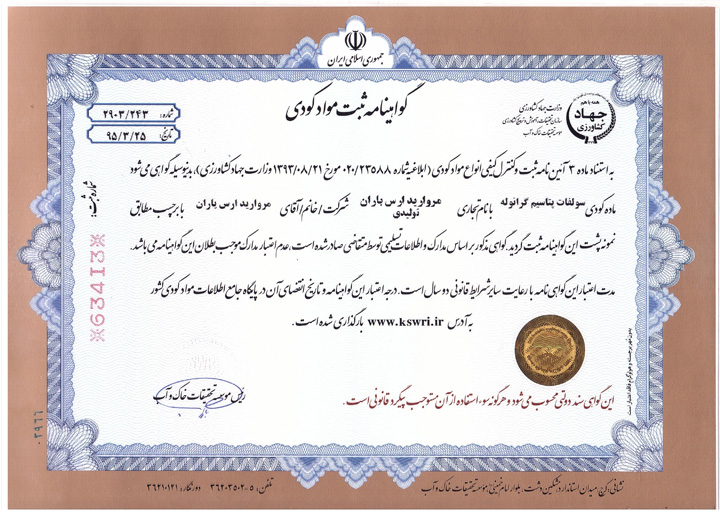 جمهوری اسلامی ایران
گواهینامه ثبت مواد کودی
همه با هم
جهاد
کشاورزی
وزارت جهاد کشاورزی
سازمان تحقیقات، آموزش و ترویج کشاورزی
موسسه تحقیقات خاک و آب
شماره: ۲۹۰۳/۲۴۳
تاریخ: ۹۵/۳/۲۵
به استناد ماده ۳ آئین نامه ثبت و کنترل کیفی انواع مواد کودی (ابلاغیه شماره ۰۲۰/۲۳۵۸۸ مورخ ۱۳۹۳/۰۸/۲۱ وزارت جهاد کشاورزی)، بدینوسیله گواهی می شود
ماده کودی سولفات پتاسیم گرانوله با نام تجاری مروارید ارس باران تولیدی شرکت/خانم/آقای مروارید ارس باران با برچسب مطابق
نمونه پشت این گواهینامه ثبت گردید. گواهی مذکور بر اساس مدارک و اطلاعات تسلیمی توسط متقاضی صادر شده است. عدم اعتبار مدارک موجب بطلان این گواهینامه می باشد.
مدت اعتبار این گواهی نامه با رعایت سایر شرایط قانونی دو سال است. درجه اعتبار این گواهینامه و تاریخ انقضای آن در پایگاه جامع اطلاعات مواد کودی کشور
به آدرس www.kswri.ir بارگذاری شده است.
شماره ثبت:
※63413※
رئیس موسسه تحقیقات خاک و آب
این گواهی سند دولتی محسوب می شود و هرگونه سوء استفاده از آن مستوجب پیگرد قانونی است.
۰۲۹۶۶
نشانی: کرج، میدان استاندارد، مشکین دشت، بلوار امام خمینی، موسسه تحقیقات خاک و آب
تلفن: ۵-۳۶۲۰۳۵۰۲ دورنگار: ۳۶۲۱۰۱۲۱